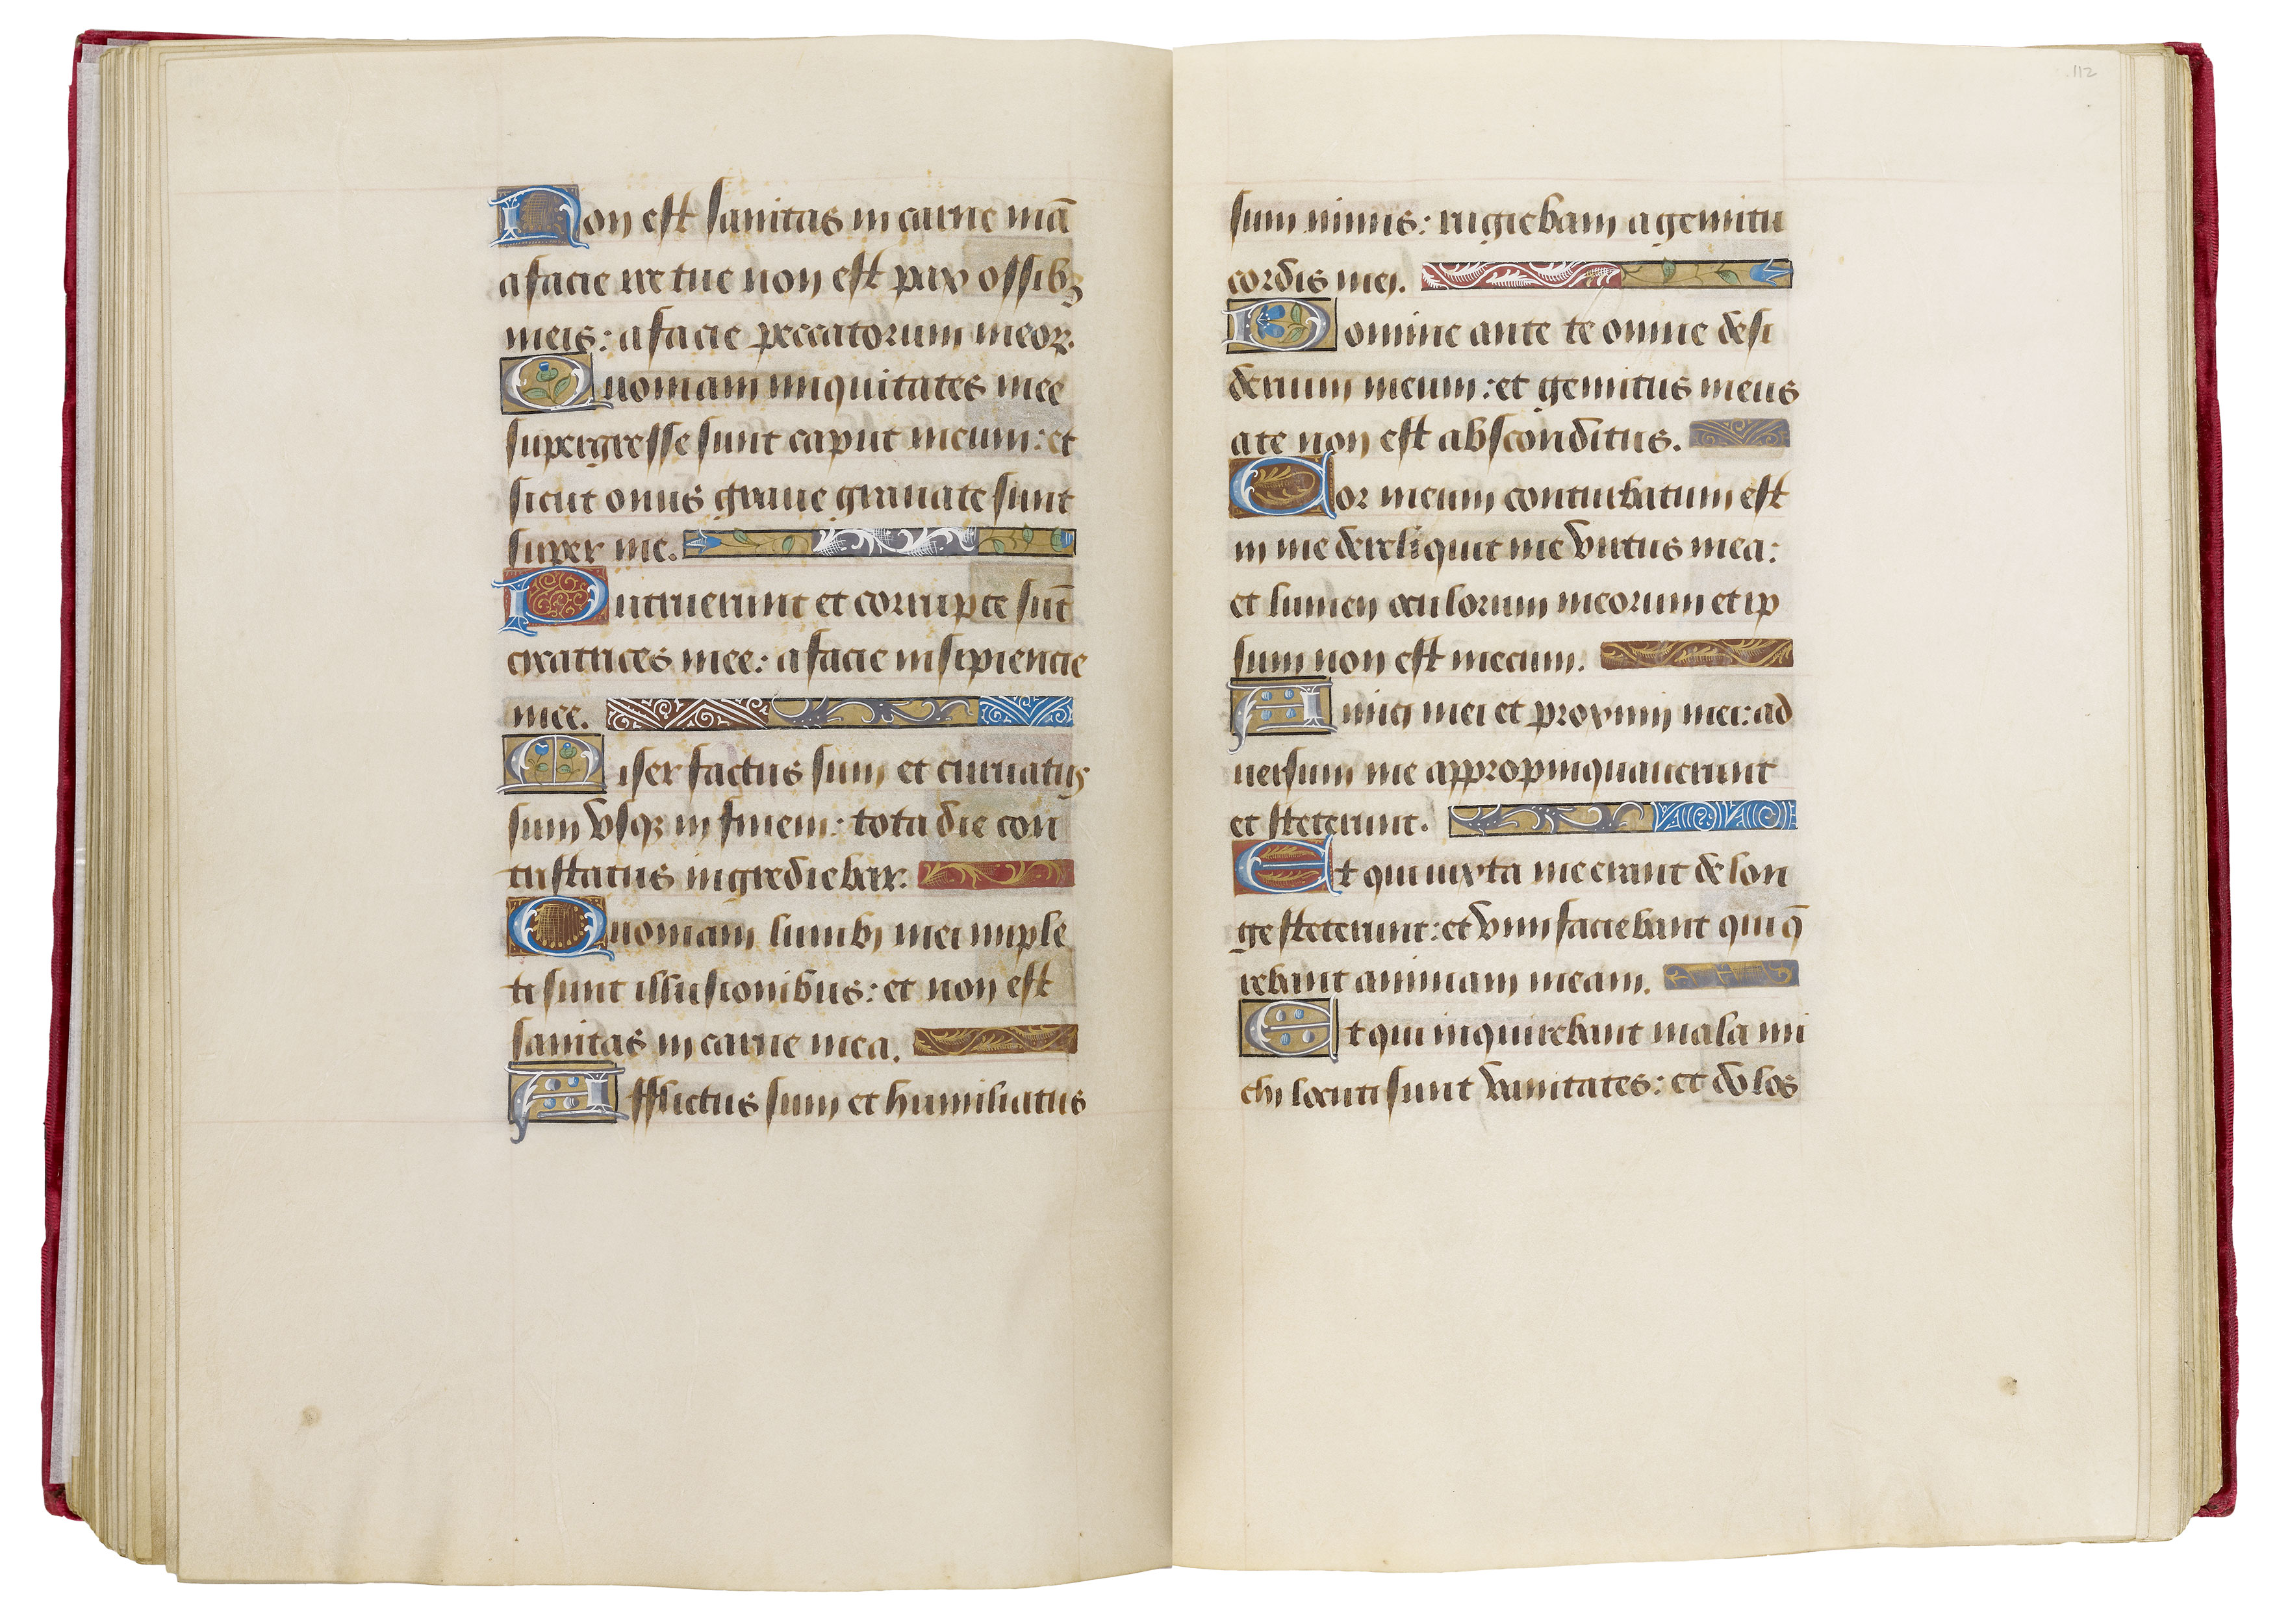 Non est sanitas in carne mea᷒
a facie ire tue non est pax ossibꝫ
meis: a facie peccatorum meoꝝ.
Quoniam iniquitates mee
supergresse sunt caput meum: et
sicut onus graue grauate sunt
super me.
Putruerunt et corrupte sūt
cicatrices mee: a facie insipiencie
mee.
Miser factus sum et curuatus
sum vsqꝫ in finem: tota die con
tristatus ingrediebar.
Quoniam lumbi mei imple
ti sunt illusionibus: et non est
sanitas in carne mea.
Afflictus sum et humiliatus
112
sum nimis: rugiebam a gemitu
cordis mei.
Domine ante te omne desi
derium meum: et gemitus meus
a te non est absconditus.
Cor meum conturbatum est
in me dereliquit me virtus mea:
et lumen oculorum meorum et ip
sum non est mecum.
Amici mei et proximi mei: ad
uersum me appropinquauerunt
et steterunt.
Et qui iuxta me erant de lon
ge steterunt: et vim faciebant qui q̄
rebant animam meam.
Et qui inquirebant mala mi
chi locuti sunt vanitates: et dolos